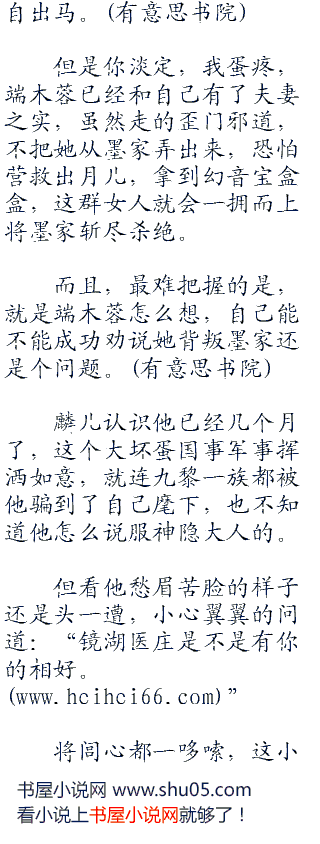 自出马。(有意思书院)
但是你淡定，我蛋疼，
端木蓉已经和自己有了夫妻
之实，虽然走的歪门邪道，
不把她从墨家弄出来，恐怕
营救出月儿，拿到幻音宝盒
盒，这群女人就会一拥而上
将墨家斩尽杀绝。
而且，最难把握的是，
就是端木蓉怎么想，自己能
不能成功劝说她背叛墨家还
是个问题。(有意思书院)
麟儿认识他已经几个月
了，这个大坏蛋国事军事挥
洒如意，就连九黎一族都被
他骗到了自己麾下，也不知
道他怎么说服神隐大人的。
但看他愁眉苦脸的样子
还是头一遭，小心翼翼的问
道：“镜湖医庄是不是有你
的相好。
(www.hcihci66.com)”
将闾心都一哆嗦，这小
书屋小说网 www.shu05.com
看小说上书屋小说网就够了！